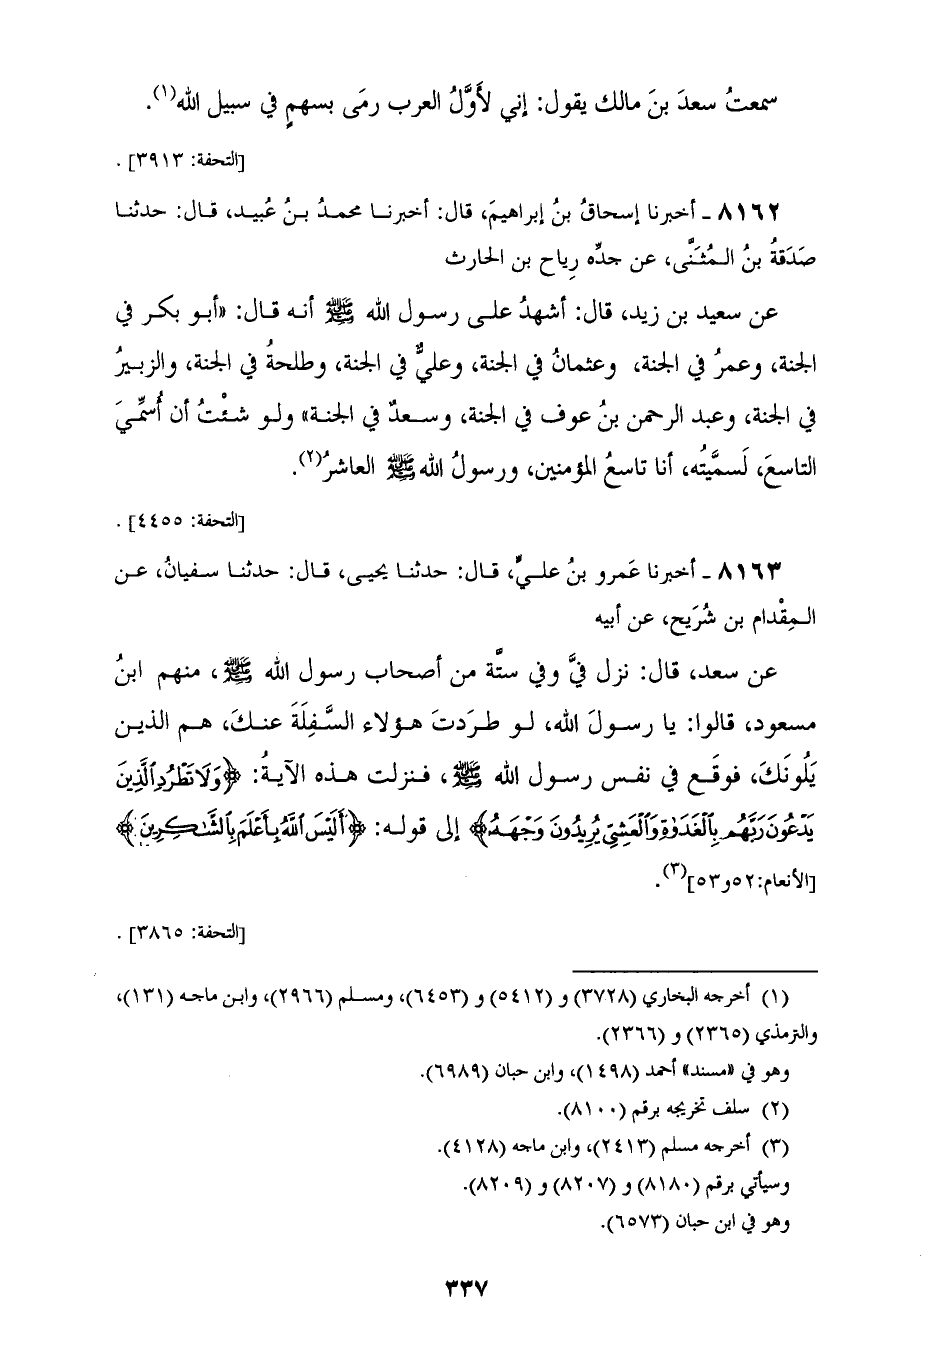 سمعتُ سعدَ بنَ مالك يقول: إني لأَوَّلُ العرب رمَى بسهمٍ في سبيل الله(١).
[التحفة: ٣٩١٣] .
٨١٦٢ ـ أخبرنا إسحاقُ بنُ إبراهيمَ، قال: أخبرنا محمدُ بنُ عُبيد، قال: حدثنا
صَدَقةُ بنُ المُثنَّى، عن جدِّه رِياح بن الحارث
عن سعيد بن زيد، قال: أشهدُ على رسول الله ﷺ أنه قال: «أبو بكر في
الجنة، وعمرُ في الجنة، وعثمانُ في الجنة، وعليٌّ في الجنة، وطلحةُ في الجنة، والزبيرُ
في الجنة، وعبد الرحمن بنُ عوف في الجنة، وسعدٌ في الجنة» ولو شئْتُ أن أُسمِّيَ
التاسعَ، لَسمَّيتُه، أنا تاسعُ المؤمنين، ورسولُ الله ﷺ العاشرُ(٢).
[التحفة: ٤٤٥٥] .
٨١٦٣ ـ أخبرنا عَمرو بنُ عليٍّ، قال: حدثنا يحيى، قال: حدثنا سفيانُ، عن
المِقْدام بن شُرَيح، عن أبيه
عن سعد، قال: نزل فيَّ وفي ستَّة من أصحاب رسول الله ﷺ، منهم ابنُ
مسعود، قالوا: يا رسولَ الله، لو طرَدتَ هؤلاء السَّفِلَةَ عنكَ، هم الذين
يَلُونَكَ، فوقَع في نفس رسول الله ﷺ، فنزلت هذه الآيةُ: ﴿وَلَا تَطْرُدِ ٱلَّذِينَ
يَدْعُونَ رَبَّهُم بِٱلْغَدَوٰةِ وَٱلْعَشِىِّ يُرِيدُونَ وَجْهَهُۥ﴾ إلى قوله: ﴿أَلَيْسَ ٱللَّهُ بِأَعْلَمَ بِٱلشَّٰكِرِينَ﴾
[الأنعام:٥٢و٥٣](٣).
[التحفة: ٣٨٦٥] .
(١) أخرجه البخاري (٣٧٢٨) و (٥٤١٢) و (٦٤٥٣)، ومسلم (٢٩٦٦)، وابن ماجه (١٣١)،
والترمذي (٢٣٦٥) و (٢٣٦٦).
وهو في «مسند» أحمد (١٤٩٨)، وابن حبان (٦٩٨٩).
(٢) سلف تخريجه برقم (٨١٠٠).
(٣) أخرجه مسلم (٢٤١٣)، وابن ماجه (٤١٢٨).
وسيأتي برقم (٨١٨٠) و (٨٢٠٧) و (٨٢٠٩).
وهو في ابن حبان (٦٥٧٣).
٣٣٧